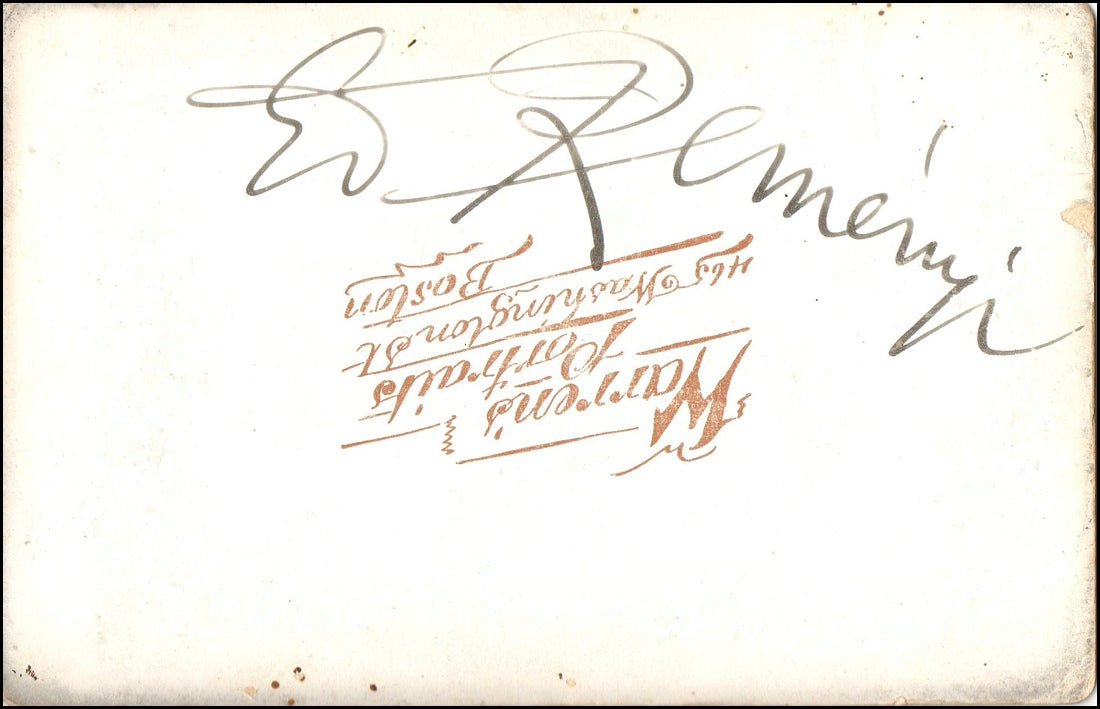 Ed Reményi
Warren's
Portraits
465 Washington St
Boston